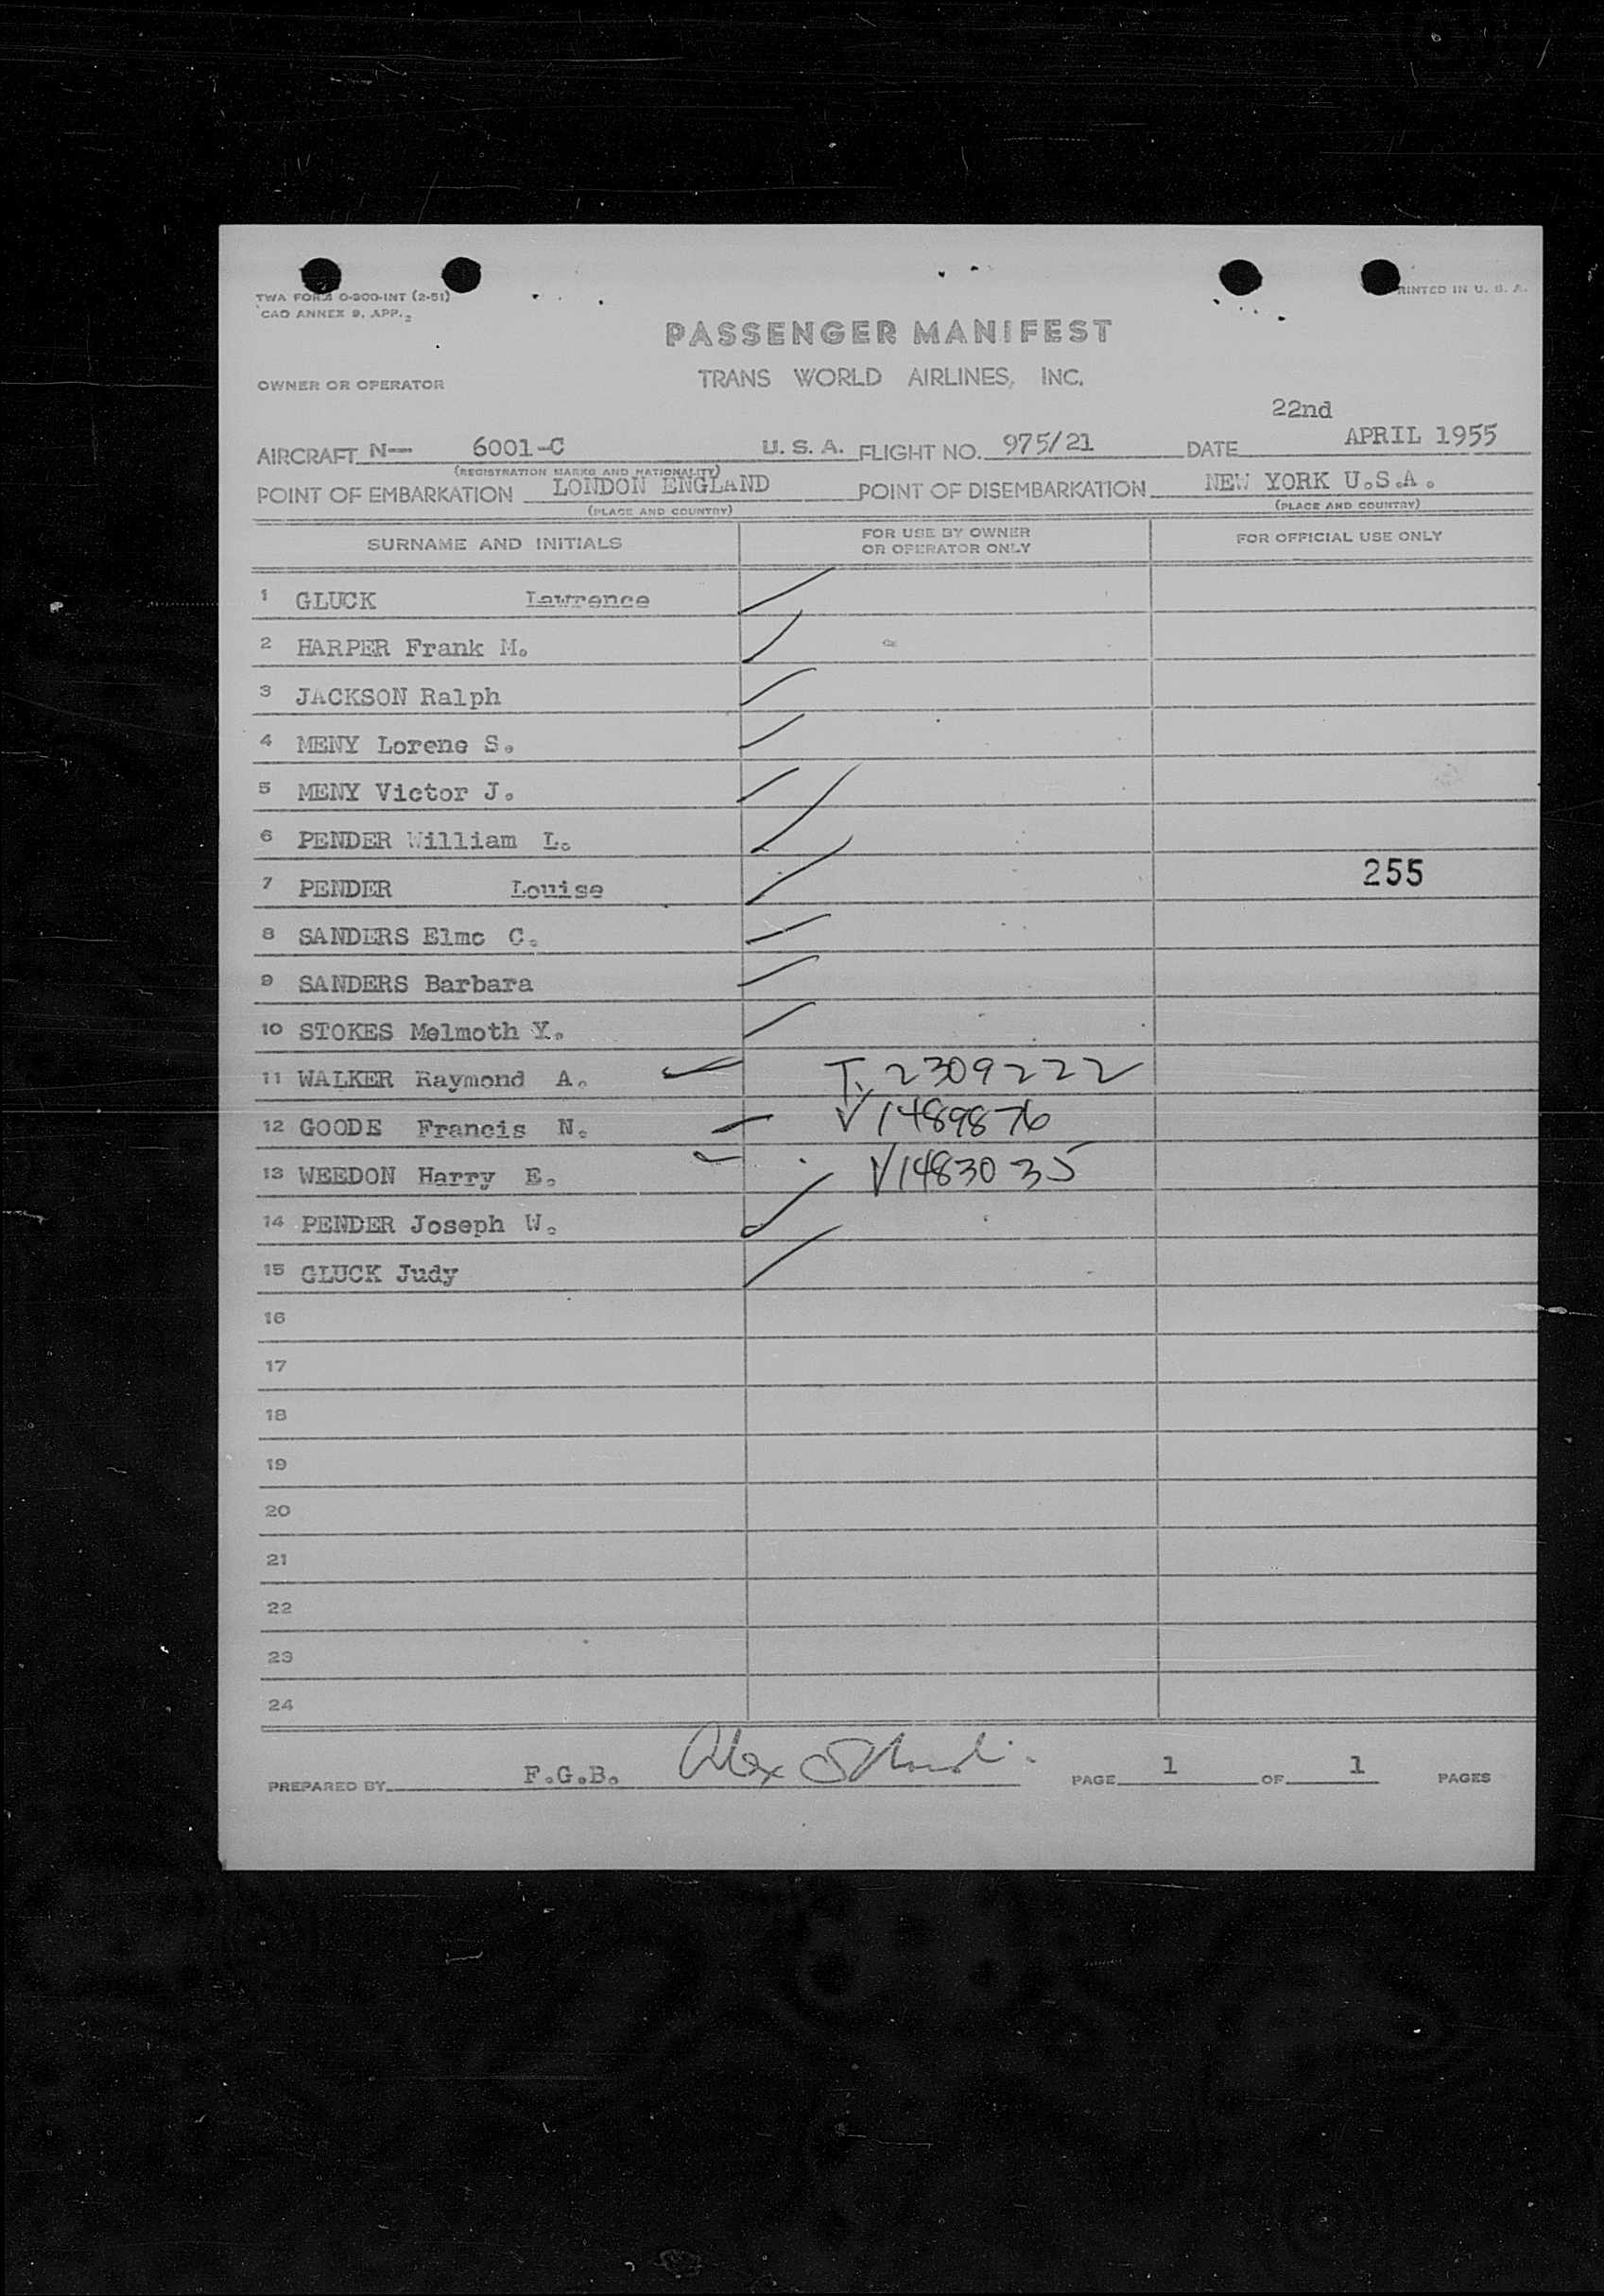 TWA FORM O-300-INT (2-51)
CAO ANNEX 9, APP. 2
PRINTED IN U. S. A.
PASSENGER MANIFEST
OWNER OR OPERATOR TRANS WORLD AIRLINES, INC.
22nd
AIRCRAFT N— 6001-C U. S. A. FLIGHT NO. 975/21 DATE APRIL 1955
(REGISTRATION MARKS AND NATIONALITY)
POINT OF EMBARKATION LONDON ENGLAND POINT OF DISEMBARKATION NEW YORK U.S.A.
(PLACE AND COUNTRY) (PLACE AND COUNTRY)
SURNAME AND INITIALS FOR USE BY OWNER OR OPERATOR ONLY FOR OFFICIAL USE ONLY
1 GLUCK Lawrence
2 HARPER Frank M.
3 JACKSON Ralph
4 MENY Lorene S.
5 MENY Victor J.
6 PENDER William L.
7 PENDER Louise 255
8 SANDERS Elmo C.
9 SANDERS Barbara
10 STOKES Melmoth Y.
11 WALKER Raymond A. T. 2309222
12 GOODE Francis N. V 1489876
13 WEEDON Harry E. V1483035
14 PENDER Joseph W.
15 GLUCK Judy
16
17
18
19
20
21
22
23
24
PREPARED BY F.G.B. Alex PAGE 1 OF 1 PAGES